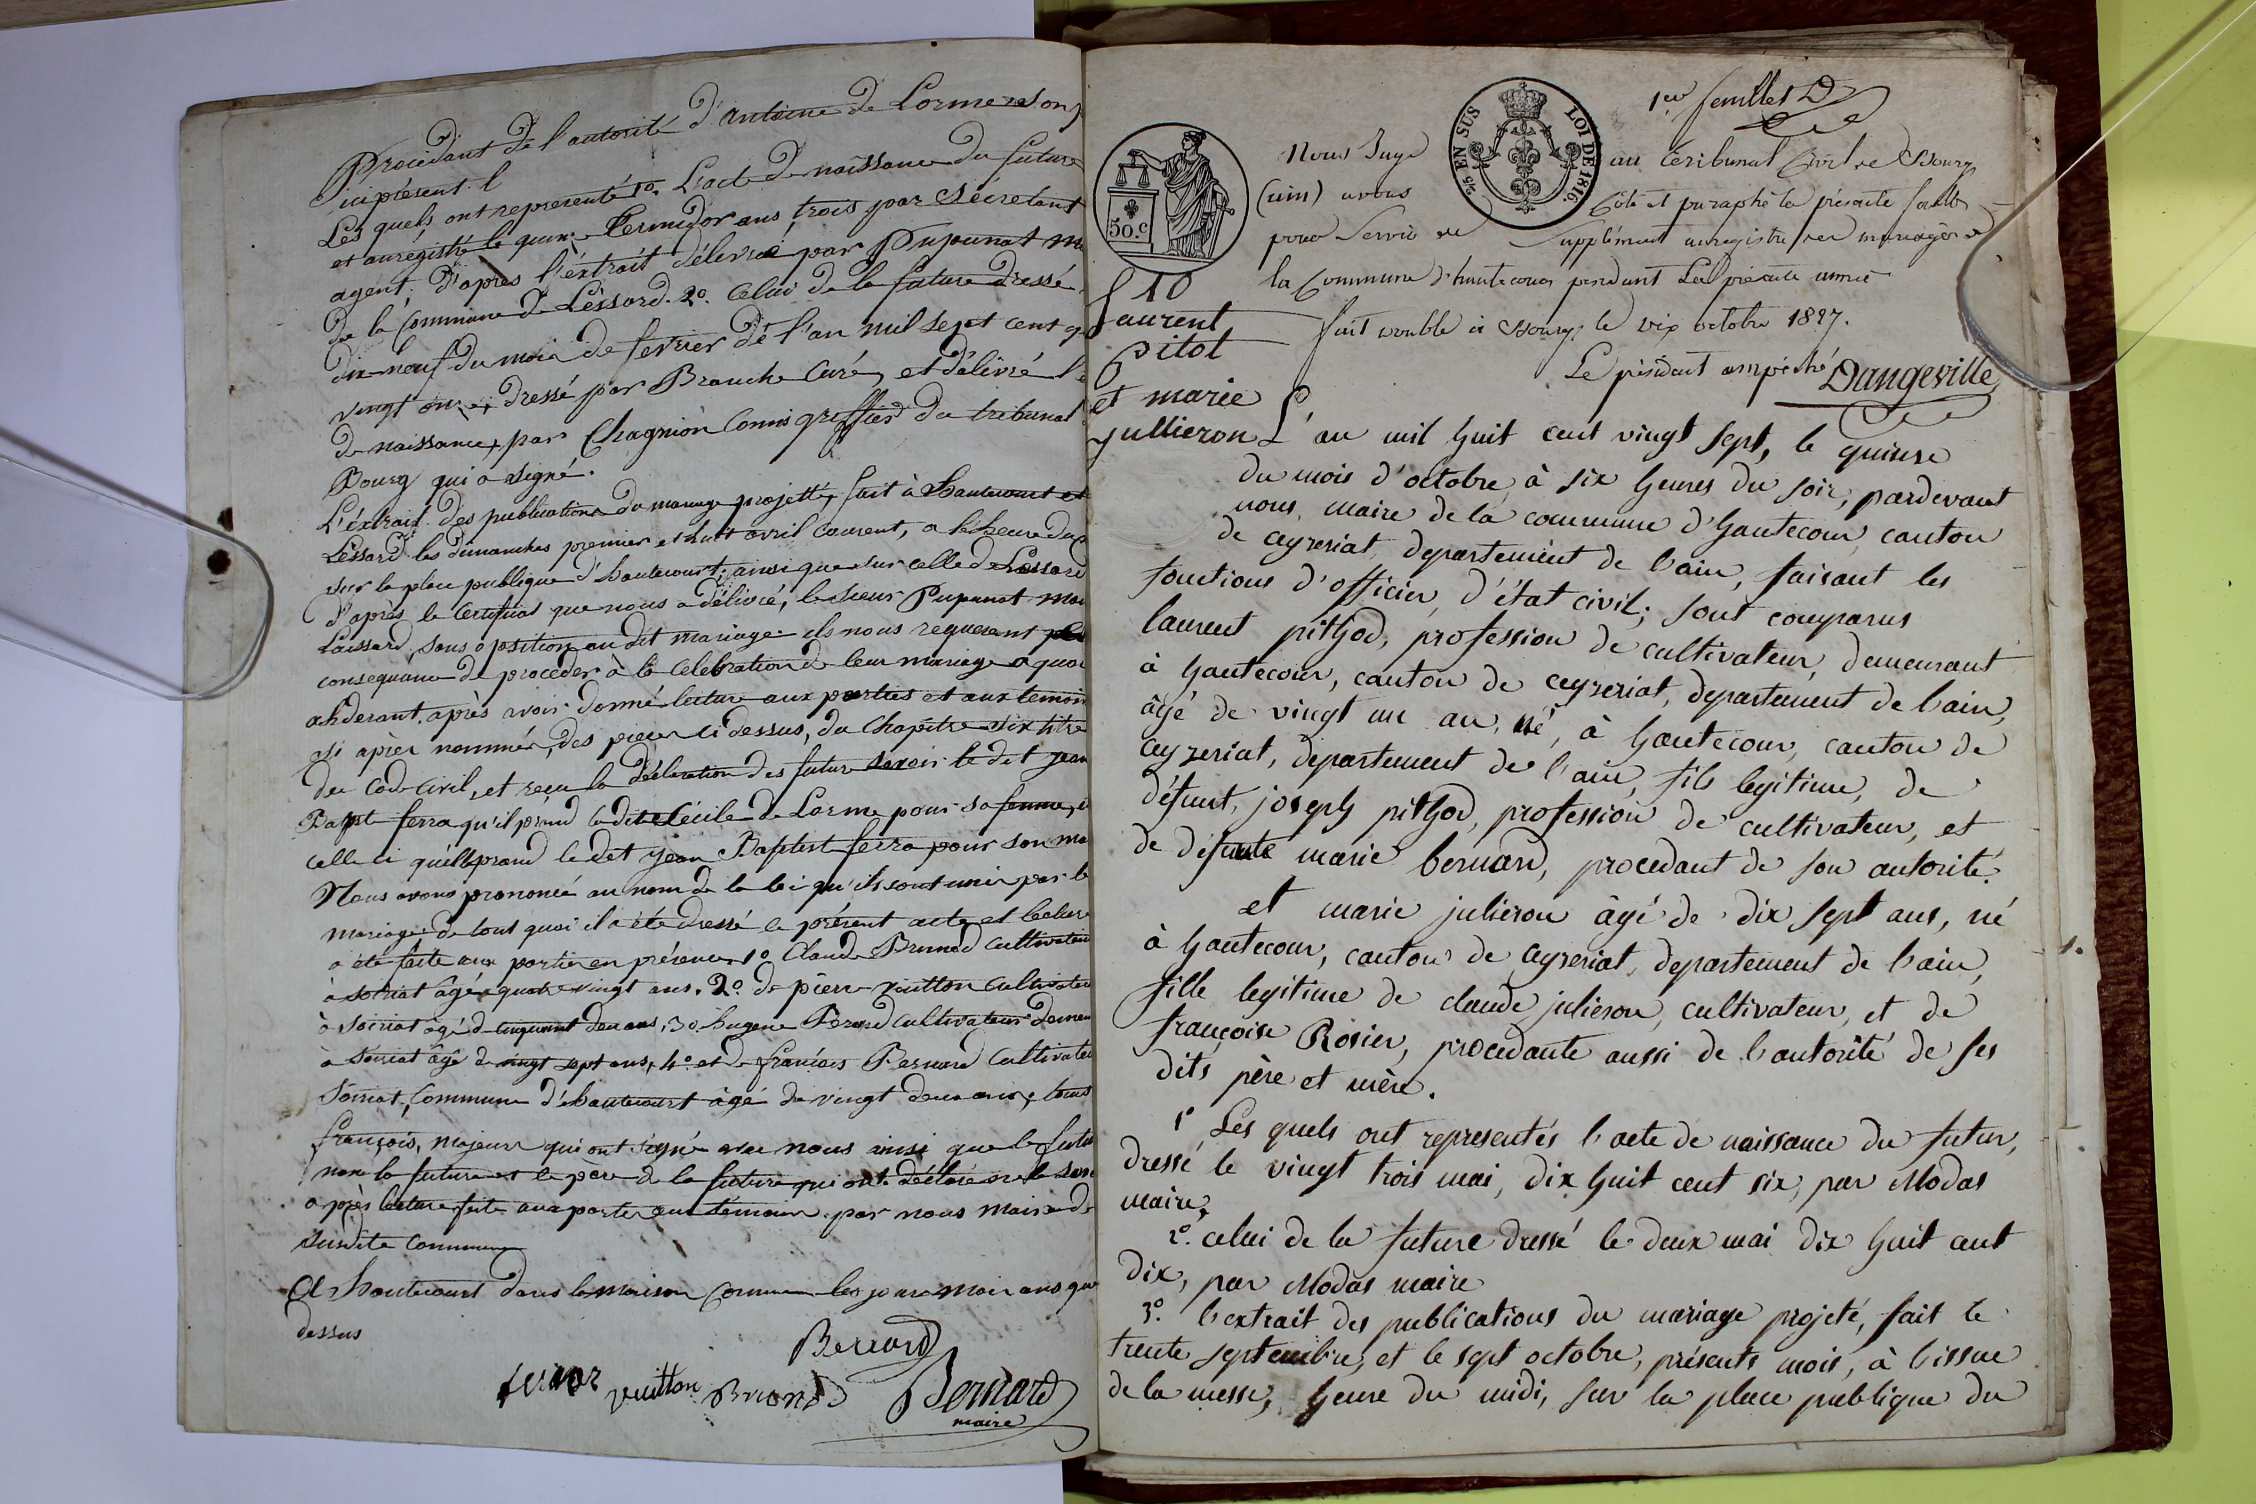 Procédant de l'autorité d'antoine de Lorme son
ici présent.
Les quels ont representé 1º. L'acte de naissance du future
et auregistré le quinze Termidor ans trois par Secretant
agent, d'après l'éxtrait délivré par Pupunat
de la Commune de Léssard. 2º. Celui de la future dressé
dix neuf du mois de fevrier dé l'an mil sept cent
vingt onze, dressé par Branche Curé, et délivré
de naissance, par Chagnion Commis greffier du tribunal
Bourg qui a signé.
L'éxtrait des publications du mariage projetté, fait à hautecourt et
Léssard les dimanches premier et huit avril Courent, a l'heure de
sur la place publique d'hautecourt, ainsi que sur celle de Lessard
d'après le Certificat que nous a délivré, le sieur Pupunat
Laissard, sans oposition au dit mariage. ils nous requerant
consequance de proceder à la Celebration de leur mariage a quoi
ahderant, après avoir donné lecture aux parties et aux temoin
ci après nommés, des pieces ci dessus, du Chapitre six titre
du Code Civil, et recu la déclaration des futur savoir le dit jean
Bapst ferra qu'il prend la dite Cécile de Lorme pour sa femme,
celle ci quelle prand le dit jean Baptist ferra pour son
Nous avons prononcé au nom de la loi qu'ils sont unis par le
mariage, de tout quoi il a été dressé le présent acte, et lecture
a été faite aux partie en présence 1º Claude Brunod Cultivateur
à Soiriat âgé quatre vingt ans. 2º. de pierre vuitton Cultivateur
à Soiriat âgé de cinquant deux ans, 3º. hugene Berard Cultivateur
à Soiriat âgé de vingt sept ans, 4º. et de françois Bernard Cultivateur
Soiriat, Commune d'hautecourt âgé de vingt deux ans, tous
françois, majeurs qui ont signé avec nous insi que le futur
non la future et le père de la future qui ont déclaré ne le
après lecture faite aux partie aux témoin, par nous maire de
susdite Commune
A hautecourt dans la maison Commune les jour mois ans que
dessus
Berrard
ferraz vuitton Brunod Bernard
maire
1er feuillet D
25 EN SUS
LOI DE 1816.
50.c
Nous Juge au tribunal Civil de Bourg
(ain) avons Coté et paraphé la présente feuille
pour Servir de Supplément au registre des mariages de
la Commune d'hautecour pendant La présente année
fait double à Bourg, le dix octobre 1827.
Le président empéché Dangeville
10
Laurent
Pitot
et marie
jullieron
L'an mil huit cent vingt sept, le quinze
du mois d'octobre, à six heures du soir, pardevant
nous, maire de la commune d'hautecour, canton
de ceyzeriat, departement de l'ain, faisant les
fonctions d'officier, d'état civil; sont comparus
laurent pithod, profession de cultivateur, demeurant
à hautecour, canton de ceyzeriat, departement de l'ain,
âgé de vingt un an, né, à hautecour, canton de
ceyzeriat, departement de l'ain, fils legitime, de
défunt, joseph pithod, profession de cultivateur, et
de défunte marie bernard, procedant de son autorité.
et marie julieron âgé de dix sept ans, né
à hautecour, canton de ceyzeriat, departement de l'ain,
fille legitime de claude julieron, cultivateur, et de
françoise Rosier, procedante aussi de l'autorité de ses
dits père et mère.
1º Les quels ont representés l'acte de naissance du futur,
dressé le vingt trois mai, dix huit cent six, par Modas
maire,
2º. celui de la future dressé le deux mai dix huit cent
dix, par Modas maire
3º. l'extrait des publications du mariage projeté, fait le
trente septembre, et le sept octobre, présents mois, à l'issue
de la messe, heure du midi, sur la place publique du